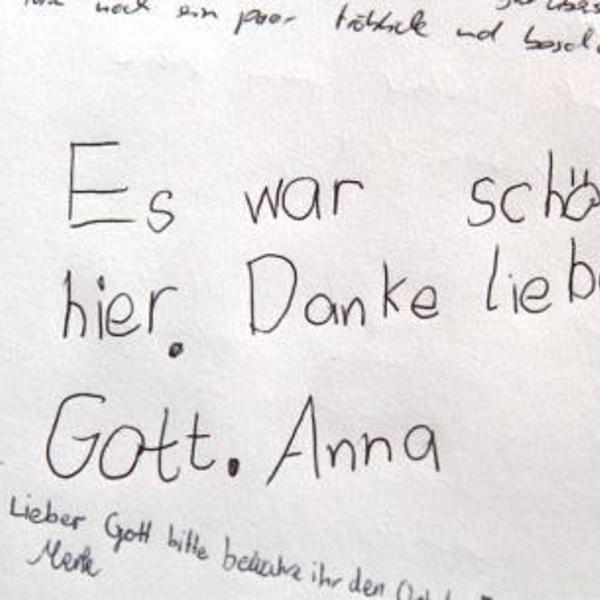 noch ein paar fröhliche und
Es war schö
hier. Danke liebe
Gott. Anna
Lieber Gott bitte behüte ihr den